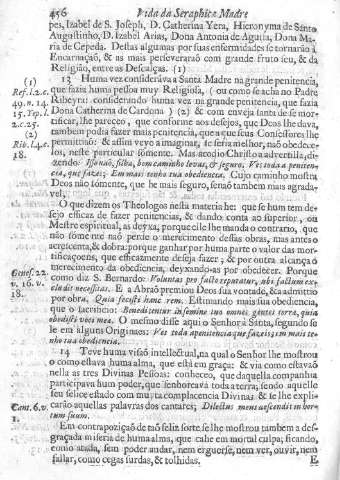 456 Vida da Seraphica Madre
pes, Izabel de S. Joseph, D. Catherina Yera, Hieronyma de Santo
Augostinho, D. Izabel Arias, Dona Antonia de Agutia, Dona Ma-
ria de Cepeda. Destas algumas por suas enfermidades se tornarão á
Encarnação, & as mais perseverarão com grande fruto seu, & da
Religião, entre as Descalças. (1)
(1)
Ref. l. 2. c.
49. n. 14.
15. Tep. l.
2. c. 25.
(2)
Rib. l. 4. c.
18.
13 Huma vez considerava a Santa Madre na grande penitencia,
que fazia huma pessoa muy Religiosa, (ou como se acha no Padre
Ribeyra: considerando huma vez na grande penitencia, que fazia
Dona Catherina de Cardona) (2) & com enveja santa de se mor-
tificar, lhe pareceo, que conforme aos desejos, que Deos lhe dava,
tambem podia fazer mais penitencia, a que seus Confessores lhe
permittião: & assim veyo a imaginar, se seria melhor, não obedece-
los, neste particular sómente. Mas acodio Christo a advertila, di-
zendo: Isso não, filha, bom caminho levas, & seguro. Ves toda a peniten-
cia, que fazes; Em mais tenho tua obediencia. Cujo caminho mostra
Deos não sómente, que he mais seguro, senaõ tambem mais agrada-
vel.
O que dizem os Theologos nesta materia he: que se hum tem de-
sejo efficaz de fazer penitencias, & dando conta ao superior, ou
Mestre espiritual, as deyxa, porque elle lhe manda o contrario, que
não sómente não perde o merecimento dessas obras, mas antes o
acrescenta, & dobra: porque ganhar por huma parte o valor das mor-
tificaçoens, que efficazmente deseja fazer; & por outra alcança o
merecimento da obediencia, deyxando-as por obedecer. Porque
como diz S. Bernardo: Voluntas pro facto reputatur, ubi factum ex-
cludit necessitas. E a Abraõ premiou Deos sua vontade, & a admittio
por obra. Quia fecisti hanc rem. Estimando mais sua obediencia,
que o sacrificio: Benedicentur in semine tuo omnes gentes terra, quia
obedisti voci mea. O mesmo disse aqui o Senhor á Santa, segundo se
le em alguns Originaes: Ves toda a penitencia que fazeis; em mais te-
nho tua obediencia.
Genes. 22.
v. 16. v.
18.
14 Teve huma visaõ intellectual, na qual o Senhor lhe mostrou
o como estava huma alma, que está em graça: & via como estavaõ
nella as tres Divinas Pessoas: conheceo, que daquella companhia
participava hum poder, que senhoreava toda a terra; sendo aquelle
seu felice estado com muyta complacencia Divina: & se lhe expli-
carão aquellas palavras dos cantares; Dilectus meus descendit in hor-
tum suum.
Cant. 6. v.
1.
Em contraposição de taõ feliz sorte se lhe mostrou tambem a des-
graçada miseria de huma alma, que cahe em mortal culpa; ficando,
como atada, sem poder andar, nem erguerse, nem ver, ouvir, nem
fallar, como cegas surdas, & tolhidas. E.